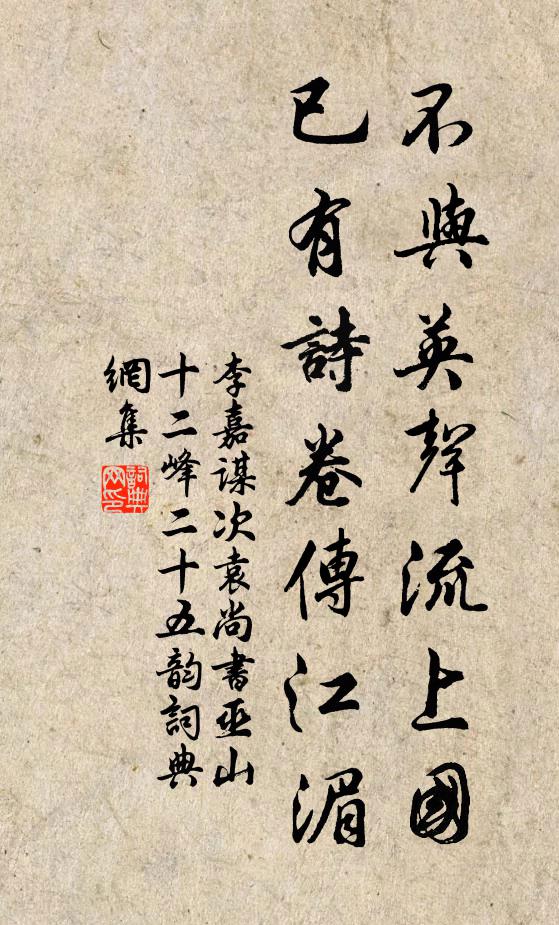 不與英聲流上國
已有詩卷傳江湄
李嘉謀次袁尚書巫山
十二峰二十五韵詞典
網集
詞典
网印